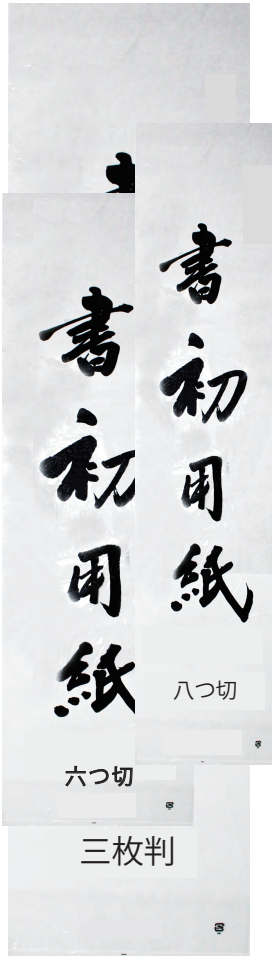 書初用紙
八つ切
書初用紙
六つ切
三枚判